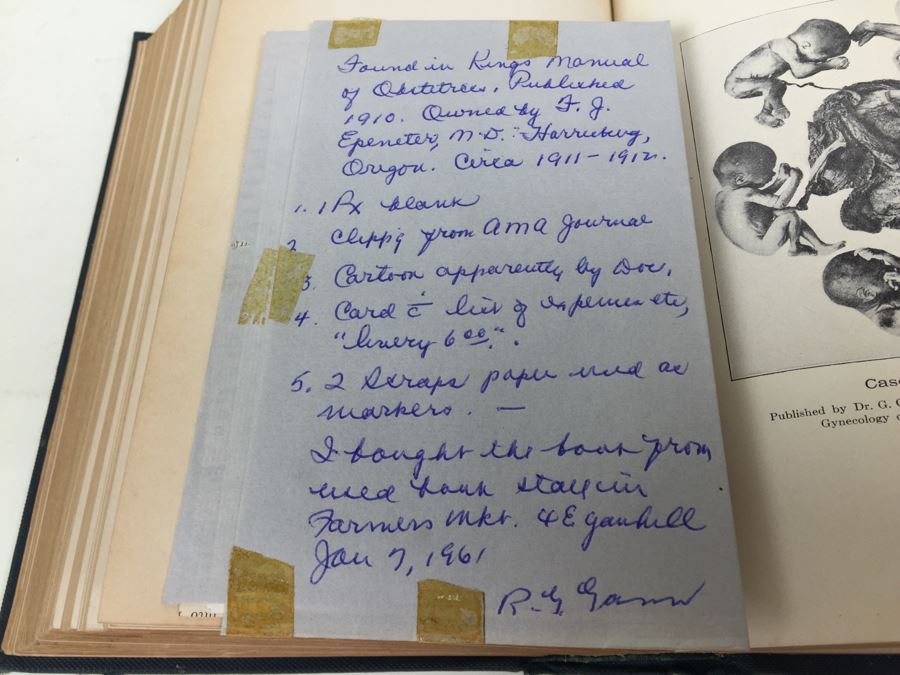 Found in Kings Manual
of Obstetrics, Published
1910. Owned by F. J.
Epeneter, M.D. Harrisburg,
Oregon. Circa 1911-1912.
1. 1 Rx blank
2 Clippig from AMA Journal
3. Cartoon apparently by Doc.
4. Card c̄ list of expenses etc,
"livery 6 00".
5. 2 Scraps paper used as
markers. —
I bought the book from
used book stall in
Farmers Mkt. 
Jan 7, 1961
R. G.
Case
Published by Dr. G. C
Gynecology o